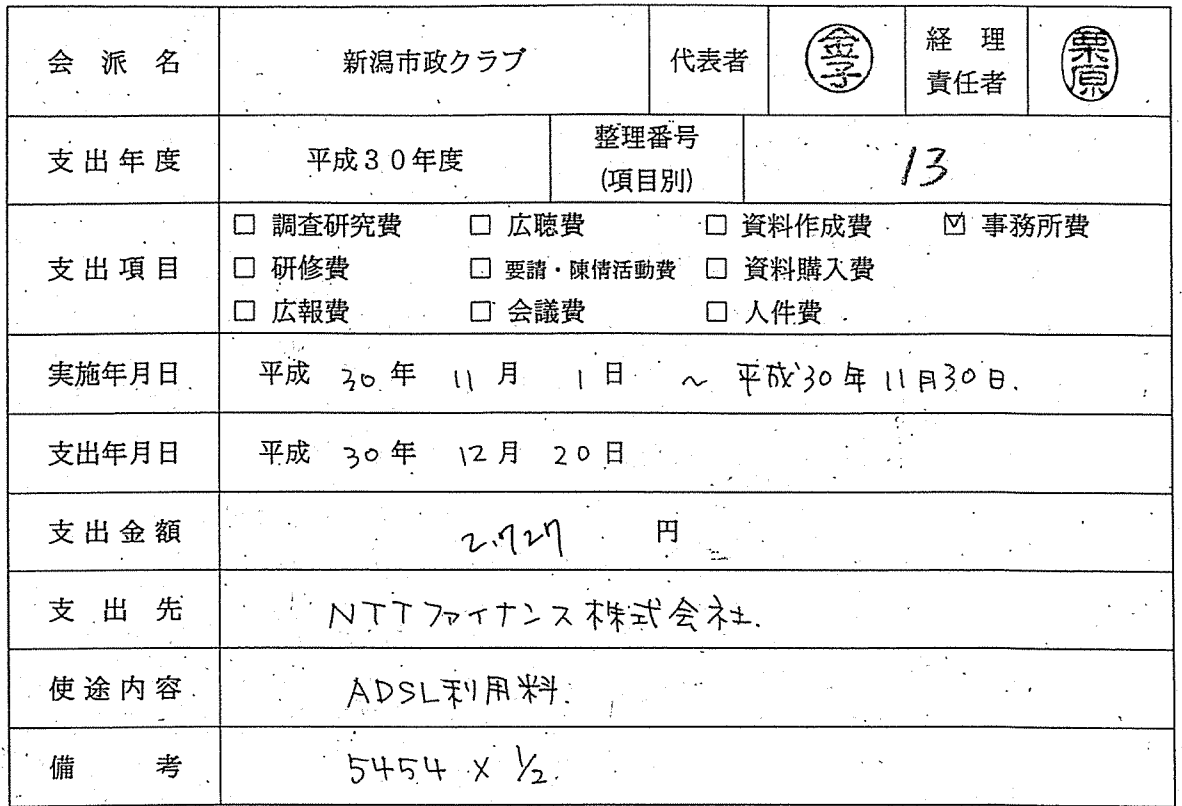 会派名 新潟市政クラブ 代表者 金子 経理責任者 栗原
支出年度 平成30年度 整理番号(項目別) 13
支出項目
□ 調査研究費 □ 広聴費 □ 資料作成費 ☑ 事務所費
□ 研修費 □ 要請・陳情活動費 □ 資料購入費
□ 広報費 □ 会議費 □ 人件費
実施年月日 平成 30年 11月 1日 ~ 平成30年11月30日.
支出年月日 平成 30年 12月 20日
支出金額 2,727 円
支出先 NTTファイナンス株式会社.
使途内容 ADSL利用料.
備考 5454 × 1/2.